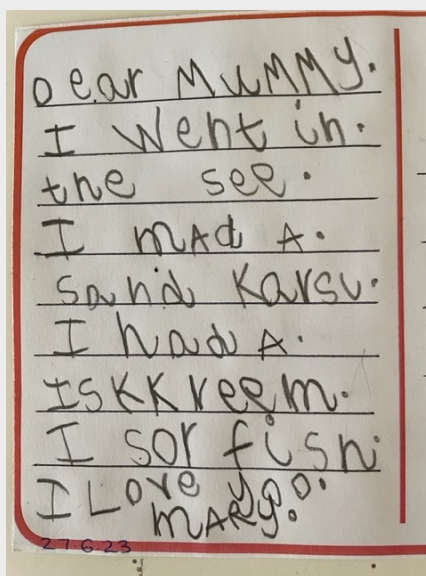 Dear MuMMy.
I went in.
the see.
I mAd A.
sand Karsu.
I had A.
IsKKreem.
I sor fish.
I Love yoo.
MARy.
27.6.23